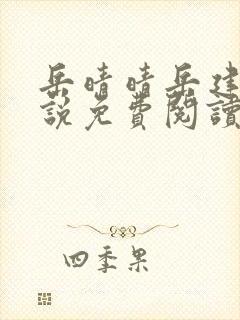 岳晴晴岳建
說免費閱讀
四季果